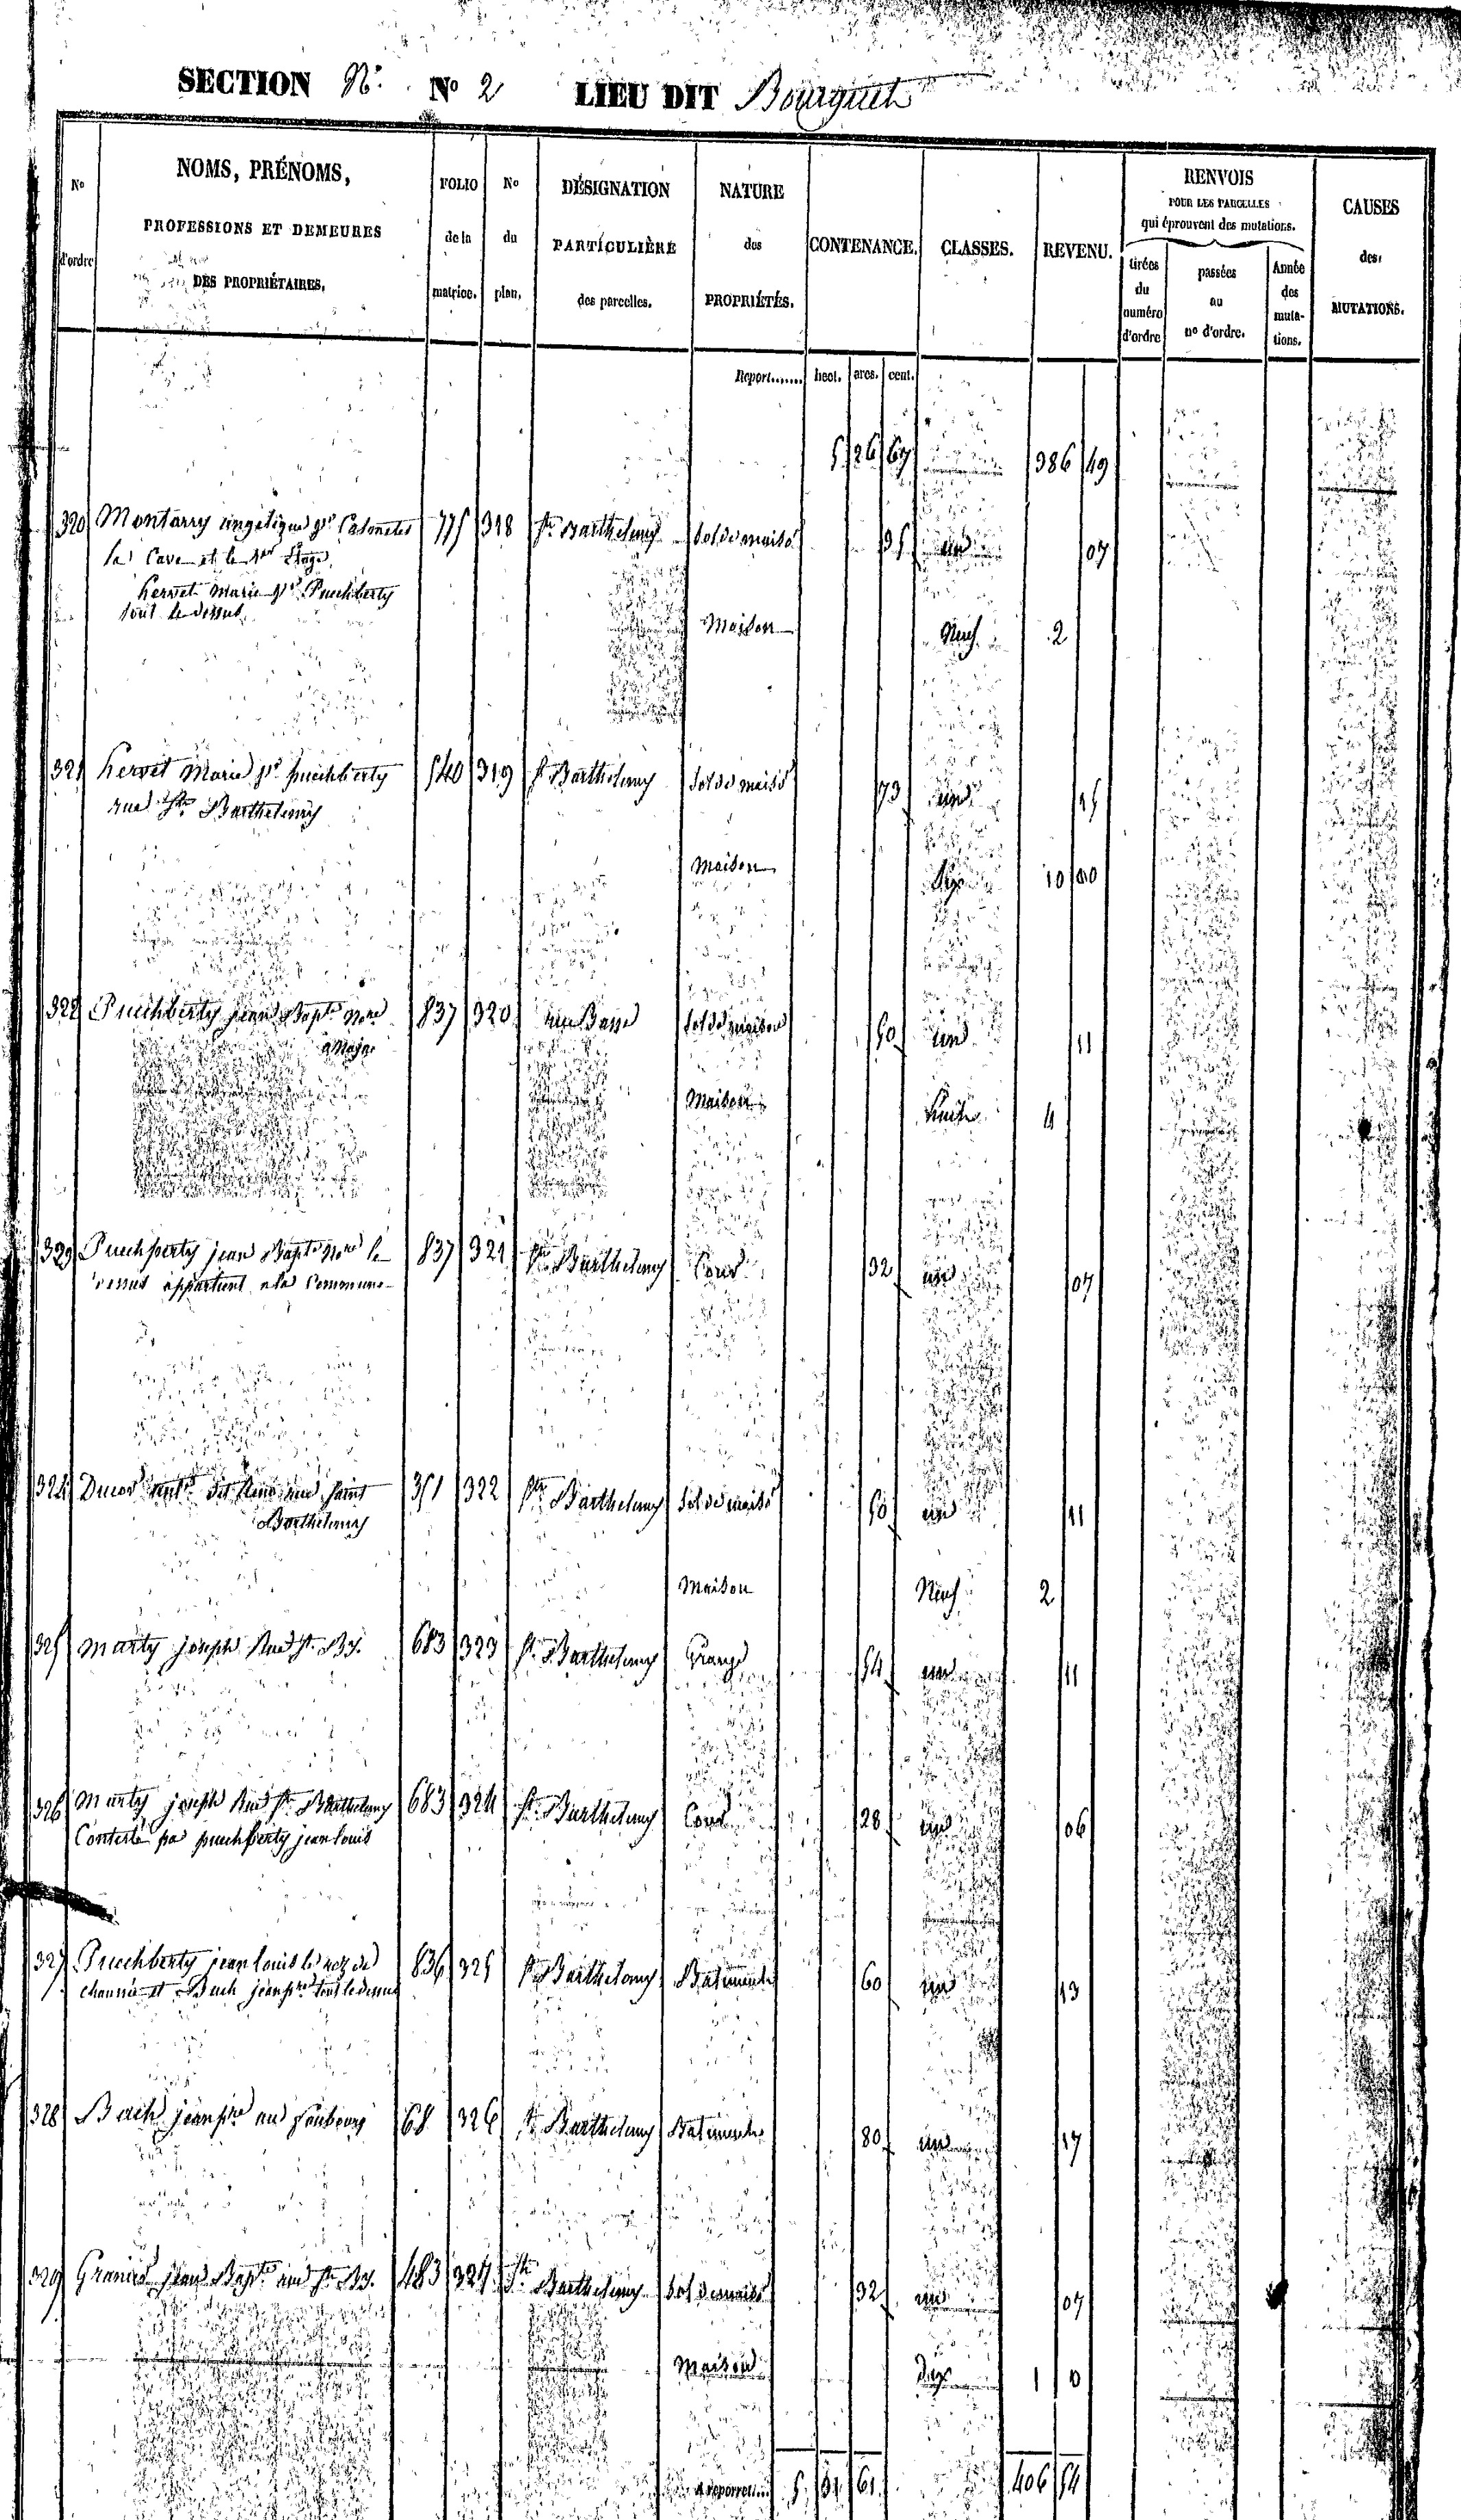 SECTION N. No 2 LIEU DIT Bourguet
No d'ordre
NOMS, PRÉNOMS,
PROFESSIONS ET DEMEURES
DES PROPRIÉTAIRES.
FOLIO de la matrice.
No du plan.
DÉSIGNATION PARTICULIÈRE des parcelles.
NATURE des PROPRIÉTÉS.
CONTENANCE.
CLASSES.
REVENU.
RENVOIS
POUR LES PARCELLES
qui éprouvent des mutations.
tirées du numéro d'ordre
passées au no d'ordre.
Année des mutations.
CAUSES des MUTATIONS.
Report....... hect. ares. cent.
5 26 67 386 49
320 Montarry 775 318 St Barthelemy Sol de maison 35 un 07
la Cave et le 1er Etage
hervet Marie Puechberty
tout le dessus Maison Neuf 2
321 hervet Marie puechberty 540 319 St Barthelemy Sol de maison 73 un 15
rue St Barthelemy
Maison Six 10 00
322 Puechberty jean Bapte 837 320 rue Basse Sol de maison 50 un 11
Maison huit 4
323 Puechberty jean Bapte le 837 321 St Barthelemy Cour 32 un 07
dessus appartient a la Commune
324 351 322 St Barthelemy Sol de maison 50 un 11
Barthelemy
Maison Neuf 2
325 Marty joseph Rue St By. 683 323 St Barthelemy Grange 54 un 11
326 Marty joseph Rue St Barthelemy 683 324 St Barthelemy Cour 28 un 06
Contesté par puechberty jean louis
327 Puechberty jean louis le rez de 836 325 St Barthelemy Batiment 60 un 13
chaussée et Bach jean pre tout le dessus
328 Bach jean pre au foubourg 68 326 St Barthelemy Batiment 80 un 17
329 Granié jean Bapte rue St By. 483 327 St Barthelemy Sol de maison 32 un 07
Maison dix 1 0
A reporter.... 5 31 61 406 54